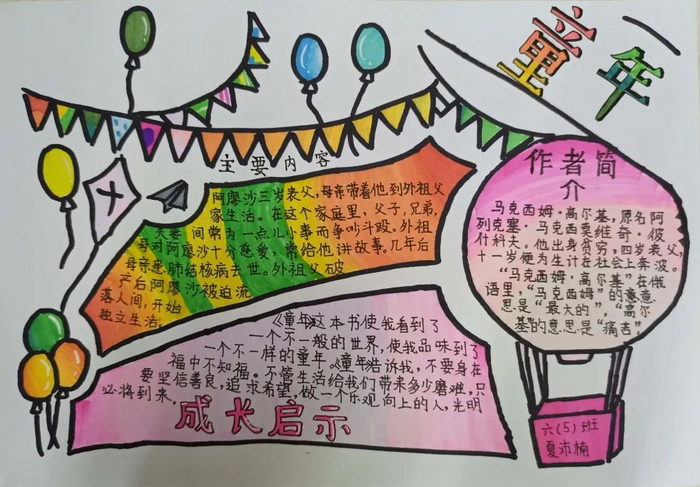 童年
主要内容
阿廖沙三岁丧父,母亲带着他到外祖父
家生活。在这个家庭里,父子,兄弟,
夫妻间常为一点儿小事而争吵斗殴。外祖
母对阿廖沙十分慈爱,常给他讲故事。几年后
母亲患肺结核病去世。外祖父破
产后阿廖沙被迫流
落人间,开始
独立生活。
作者简
介
马克西姆·高尔基,原名阿
列克塞·马克西莫维奇·彼
什科夫。他出身贫穷,四岁丧父,
十一岁便为生计在社会上奔波。
“马克西姆·高尔基”在俄
语里,“马克西姆”的意
思是“最大的”,“高尔
基”的意思是“痛苦”
《童年》这本书使我看到了
一个不一般的世界,使我品味到了
一个不一样的童年《童年》告诉我,不要身在
福中不知福。不管生活给我们带来多少磨难,只
要坚信善良,追求希望,做一个乐观向上的人,光明
必将到来。
成长启示
六(5)班
夏沛楠